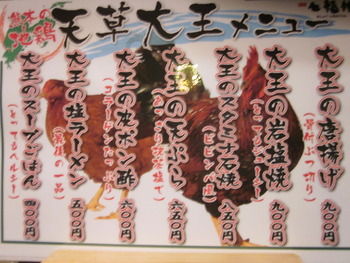 熊本の
地鶏
天草大王メニュー
大王の唐揚げ
(骨付ぶつ切り)
九〇〇円
大王の岩塩焼
九〇〇円
大王のスタミナ石焼
(ビビンバ風)
八五〇円
大王の天ぷら
六五〇円
大王の皮ポン酢
(コラーゲンたっぷり)
六〇〇円
大王の塩ラーメン
(最後の一品)
五〇〇円
大王のスープごはん
(とってもヘルシー!)
四〇〇円